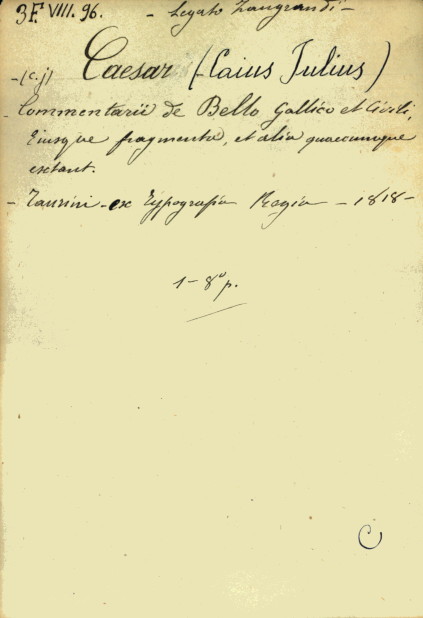 3F. VIII. 96. - Legato Zangrandi -
- (C. J) Caesar (Caius Julius)
- Commentarii de Bello Gallico et Civili,
Eiusque fragmenta, et alia quaecumque
extant.
- Taurini - ex Typografia Regia - 1818 -
1 - 8° p.
C